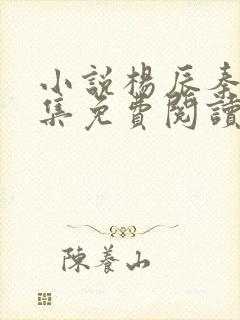 小説楊辰秦
集免費閱讀
陳養山